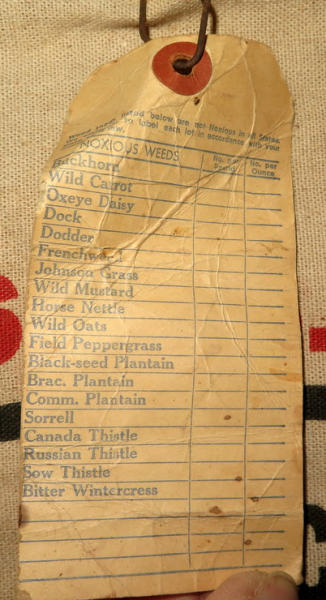 Weed seeds listed below are not Noxious in all States.
to label each lot in accordance with your
law.
NOXIOUS WEEDS
No. per Pound
No. per Ounce
Buckhorn
Wild Carrot
Oxeye Daisy
Dock
Dodder
Frenchweed
Johnson Grass
Wild Mustard
Horse Nettle
Wild Oats
Field Peppergrass
Black-seed Plantain
Brac. Plantain
Comm. Plantain
Sorrell
Canada Thistle
Russian Thistle
Sow Thistle
Bitter Wintercress